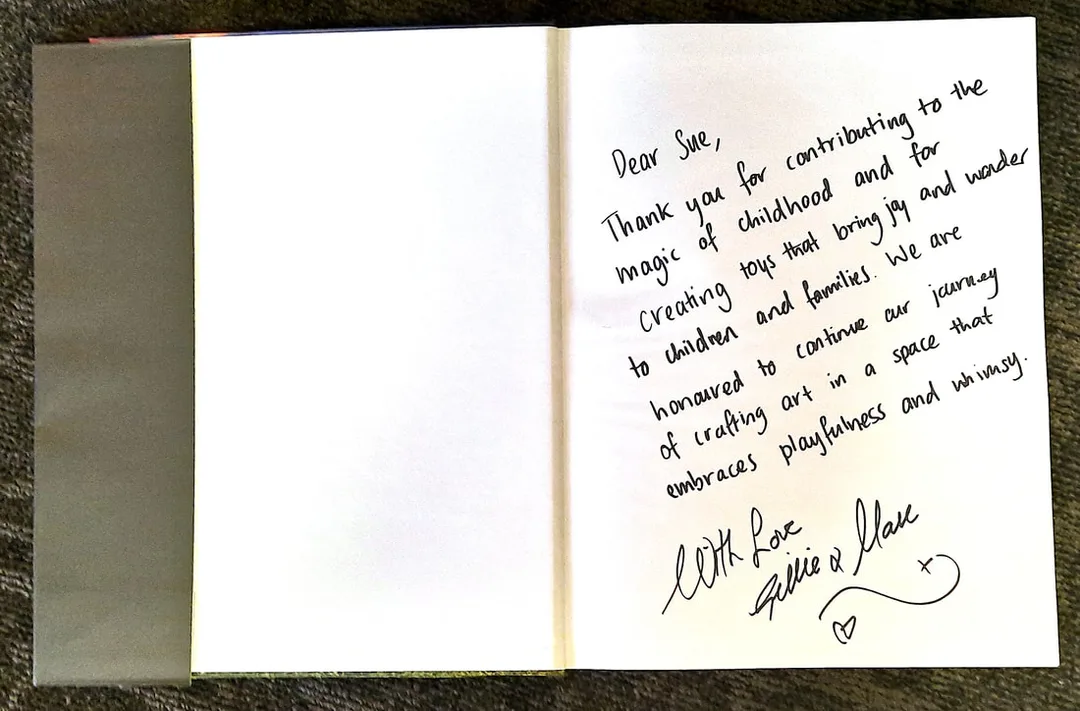 Dear Sue,
Thank you for contributing to the
magic of childhood and for
creating toys that bring joy and wonder
to children and families. We are
honoured to continue our journey
of crafting art in a space that
embraces playfulness and whimsy.
With Love
Gillie & Marc